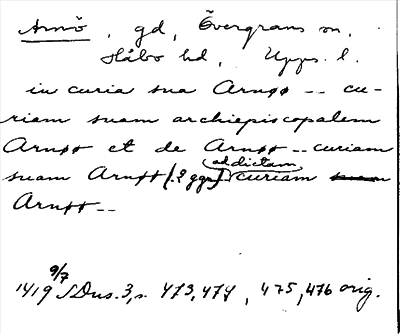 Arnö, gd, Övergrans sn,
Håbo hd, Upps. l.
in curia sua Arnøø -- cu-
riam suam archiepiscopalem
Arnøø et de Arnøø -- curiam
suam Arnøø (2 ggr) addictam curiam
Arnøø --
9/7
1419 SDns. 3, s. 473, 474, 475, 476 orig.